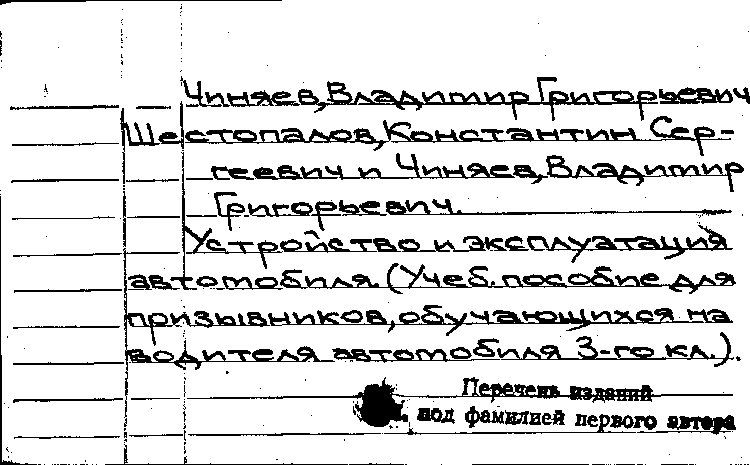 Чиняев, Владимир Григорьевич
Шестопалов, Константин Сер-
геевич и Чиняев, Владимир
Григорьевич.
Устройство и эксплуатация
автомобиля. (Учеб. пособие для
призывников, обучающихся на
водителя автомобиля 3-го кл.).
Перечень изданий
под фамилией первого автора